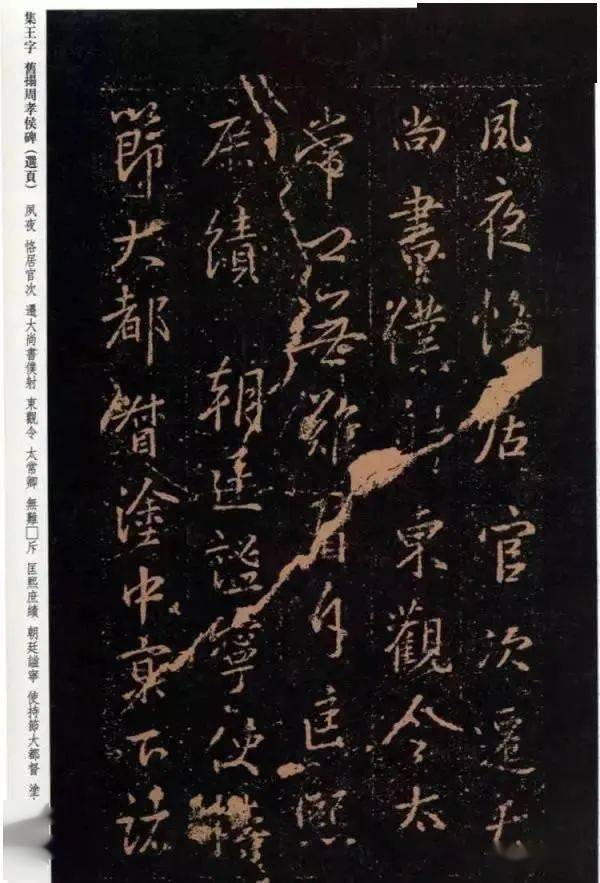 夙夜恪居官次遷大
尚書僕射東觀令太
常卿無難斥匡熙
庶績朝廷謐寧使持
節大都督塗中京下諸
集王字 舊搨周孝侯碑（選頁） 夙夜 恪居官次 遷大尚書僕射 東觀令 太常卿 無難□斥 匡熙庶績 朝廷謐寧 使持節大都督 塗